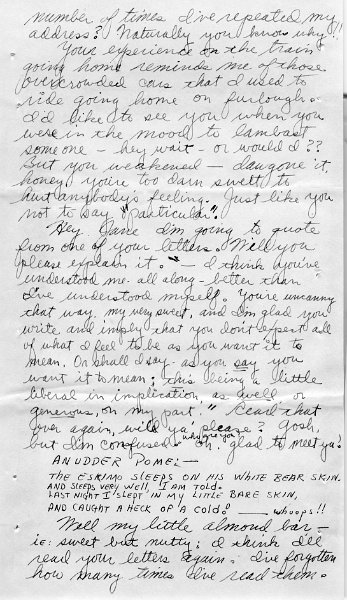 number of times I've repeated my
address? Naturally you know why!!
Your experience on the train
going home reminds me of those
overcrowded cars that I used to
ride going home on furloughs.
I'd like to see you when you
were in the mood to lambast
someone - hey wait - or would I??
But you weakened - dawgone it,
honey, you're too darn swell to
hurt anybody's feeling. Just like you
not to say "particular".
Hey Jane I'm going to quote
from one of your letters. Will you
please explain it. " - I think you've
understood me - all along - better than
I've understood myself. You're uncanny
that way, my very sweet, and I'm glad you
write and imply that you don't expect all
of what I feel to be as you want it to
mean. Or shall I say - as you say you
want it to mean; this being a little
liberal in implication, as well as
generous, on my part." Read that
over again, will ya' please? Gosh,
but I'm confused. why are you Oh! glad to meet ya!
ANUDDER POME! -
THE ESKIMO SLEEPS ON HIS WHITE BEAR SKIN.
AND SLEEPS VERY WELL, I AM TOLD.
LAST NIGHT I SLEPT IN MY LITTLE BARE SKIN,
AND CAUGHT A HECK OF A COLD. - whoops!!
Well my little almond bar -
ie: sweet but nutty; I think I'll
read your letters again. I've forgotten
how many times I've read them.